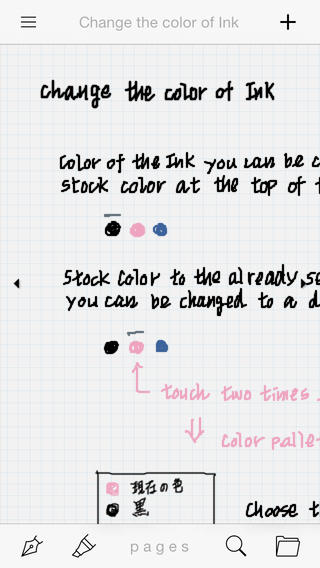 Change the color of Ink
change the color of Ink
Color of the Ink you can be c
stock color at the top of t
Stock Color to the already se
you can be changed to a d
touch two times.
color palle
現在の色
黒
Choose t
pages